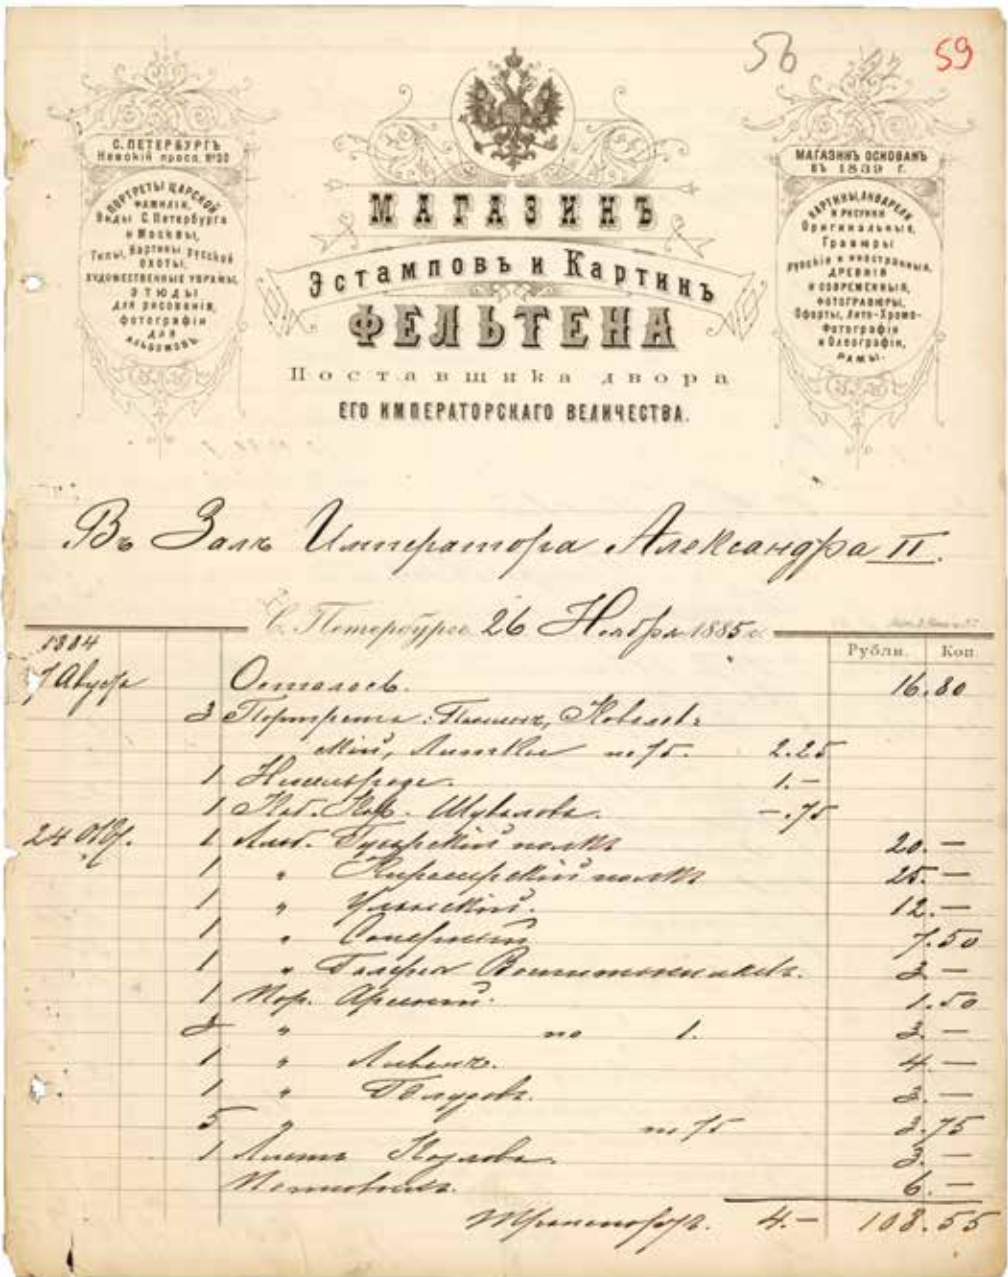 56 59
С. ПЕТЕРБУРГЪ
Невскій просп. №30
ПОРТРЕТЫ ЦАРСКОЙ
ФАМИЛІИ,
Виды С Петербурга
и Москвы,
Типы, Картины Русской
ОХОТЫ,
ХУДОЖЕСТВЕННЫЕ УКРАШЕН.
ЭТЮДЫ
ДЛЯ РИСОВАНІЯ,
Фотографіи
ДЛЯ
АЛЬБОМОВЪ.
МАГАЗИНЪ
Эстамповъ и Картинъ
ФЕЛЬТЕНА
Поставщика двора
ЕГО ИМПЕРАТОРСКАГО ВЕЛИЧЕСТВА.
МАГАЗИНЪ ОСНОВАНЪ
ВЪ 1839 Г.
КАРТИНЫ, АКВАРЕЛИ
И РИСУНКИ
Оригинальные,
Гравюры
Русскія и иностранныя,
ДРЕВНІЯ
И СОВРЕМЕННЫЯ,
ФОТОГРАВЮРЫ,
Офорты, Лито-Хромо-
Фотографіи
и Олеографіи,
РАМЫ.
Въ Залъ Императора Александра II.
С. Петербургъ 26 Ноября 1885 г.
Рубли. Коп.
1884
7 Августа Осталось. 16.80
3 Портрета:
по 75. 2.25
1 1.—
1 Шувалова. —.75
24 1 Гусарскій полкъ 20.—
1 " Кирасирскій полкъ 25.—
1 " Уланскій. 12.—
1 " Саперный 7.50
1 " Галерея 3.—
1 Пор. 1.50
3 " по 1. 3.—
1 " Ливенъ. 4.—
1 " 3.—
5 " по 75 3.75
1 Листъ Козлова. 3.—
6.—
Транспортъ. 4.— 108.55